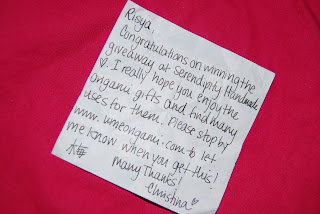 Risya,
Congratulations on winning the
giveaway at Serendipity Handmade
♡. I really hope you enjoy the
onganu gifts and find many
uses for them. Please stop by
www.umeonganu.com to let
me know when you get this!
Many Thanks!
Christina ♡